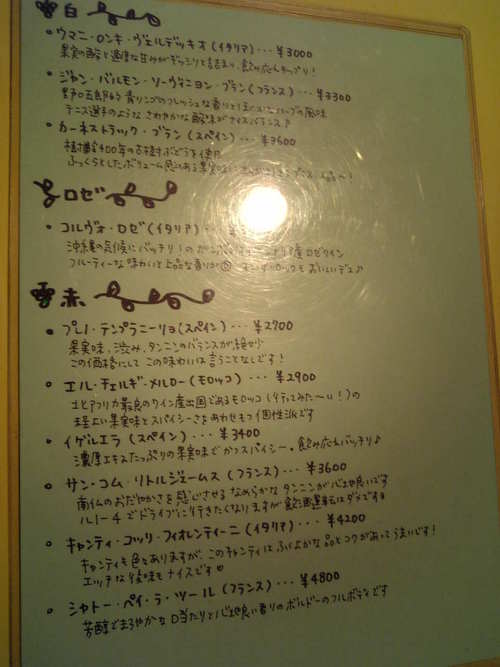 白
・ウマニ・ロンキ・ヴェルディッキオ(イタリア)・・・¥3000
果実の酸と適度な甘みがギッシリと詰まり、飲み応えたっぷり!
・ジャン・バルモン・ソーヴィニヨン・ブラン(フランス)・・・¥3300
青リンゴのフレッシュな香りと ハーブの風味
テニス選手のような さわやかな酸味がナイスバランス♪
・カーネストラック・ブラン(スペイン)・・・¥3600
樹齢400年の古樹ぶどうを使用
ふっくらとしたボリューム感のある果実味
ロゼ
・コルヴォ・ロゼ(イタリア)・・・
沖縄の気候にバッチリ!の ロゼワイン
フルーティーな味わいと上品な香り ロックもおいしいデュ♪
赤
・プレノ・テンプラニーリョ(スペイン)・・・¥2700
果実味、渋み、タンニンのバランスが絶妙
この価格にして この味わいは言うことなしです!
・エル・チェルギ・メルロー(モロッコ)・・・¥2900
北アフリカ最良のワイン産出国であるモロッコ(行ってみた〜い!)の
程よい果実味とスパイシーさをあわせもつ個性派です
・イゲルエラ(スペイン)・・・¥3400
濃厚エキスたっぷりの果実味でかつスパイシー。飲み応えバッチリ♪
・サン・コム・リトルジェームス(フランス)・・・¥3600
南仏のおだやかさを感じさせる なめらかなタンニンが心地良いです
ルート4でドライブに行きたくなりますが飲酒運転はダメです
・キャンティ・コッリ・フィオレンティーニ(イタリア)・・・¥4200
キャンティも色々ありますが、このキャンティは ふくよかな品とコクがあって うまいです!
エッチな後味もナイスです♡
・シャトー・ペイ・ラ・ツール(フランス)・・・¥4800
芳醇でまろやかな口当たりと心地良い香りのボルドーのフルボディです